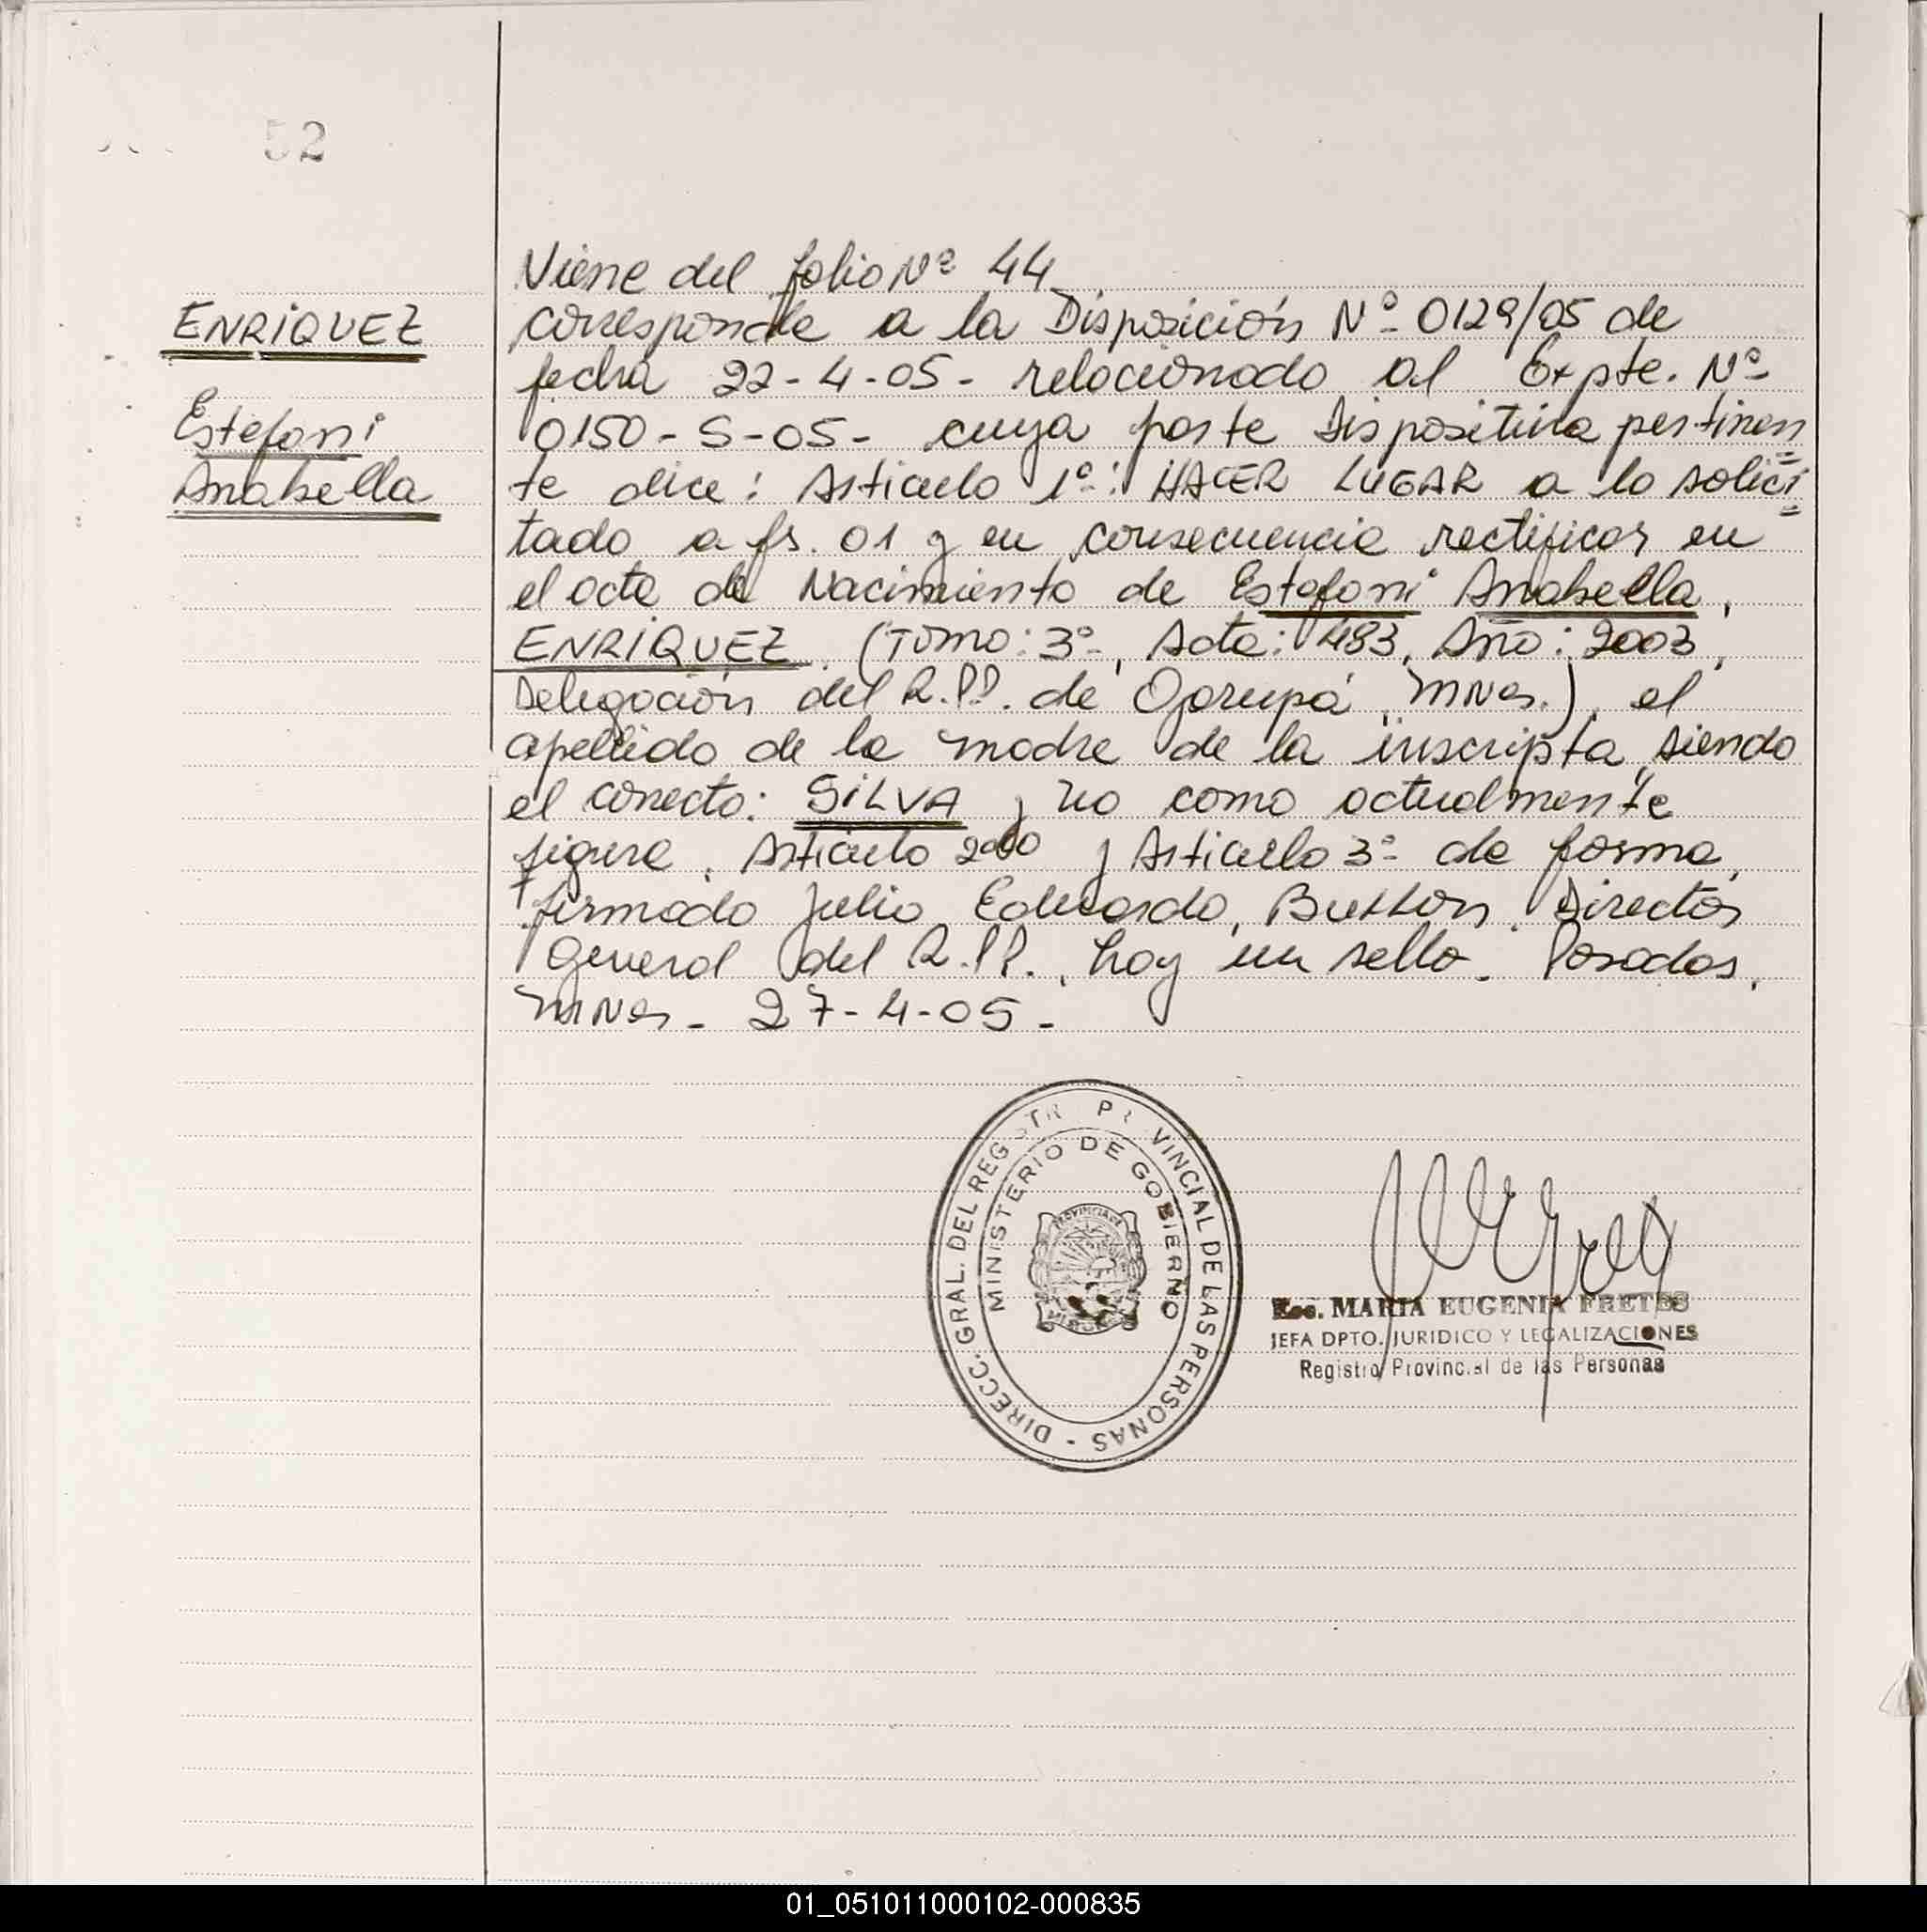 52
ENRIQUEZ
Estefani
Anabella
Viene del folio Nº 44
corresponde a la Disposición Nº 0129/05 de
fecha 22-4-05- relacionado al Expte. Nº
0150-S-05- cuya parte dispositiva pertinen
te dice: Artículo 1º: HACER LUGAR a lo solici
tado a fs. 01 y en consecuencia rectificar en
el acta de Nacimiento de Estefani Anabella,
ENRIQUEZ, (Tomo: 3º, Acta: 483, Año: 2003,
Delegación del R.P.P. de Garupá, MNes.), el
apellido de la madre de la inscripta, siendo
el correcto: SILVA y no como actualmente
figura. Artículo 2do y Artículo 3º de forma,
firmado Julio Eduardo, Director
General del R.P.P., hay un sello. Posadas,
MNes - 27-4-05-
DIRECC. GRAL. DEL REGISTRO PROVINCIAL DE LAS PERSONAS -
MINISTERIO DE GOBIERNO
PROVINCIA DE
MISIONES
Esc. MARIA EUGENIA FRETES
JEFA DPTO. JURIDICO Y LEGALIZACIONES
Registro Provincial de las Personas
01_051011000102-000835